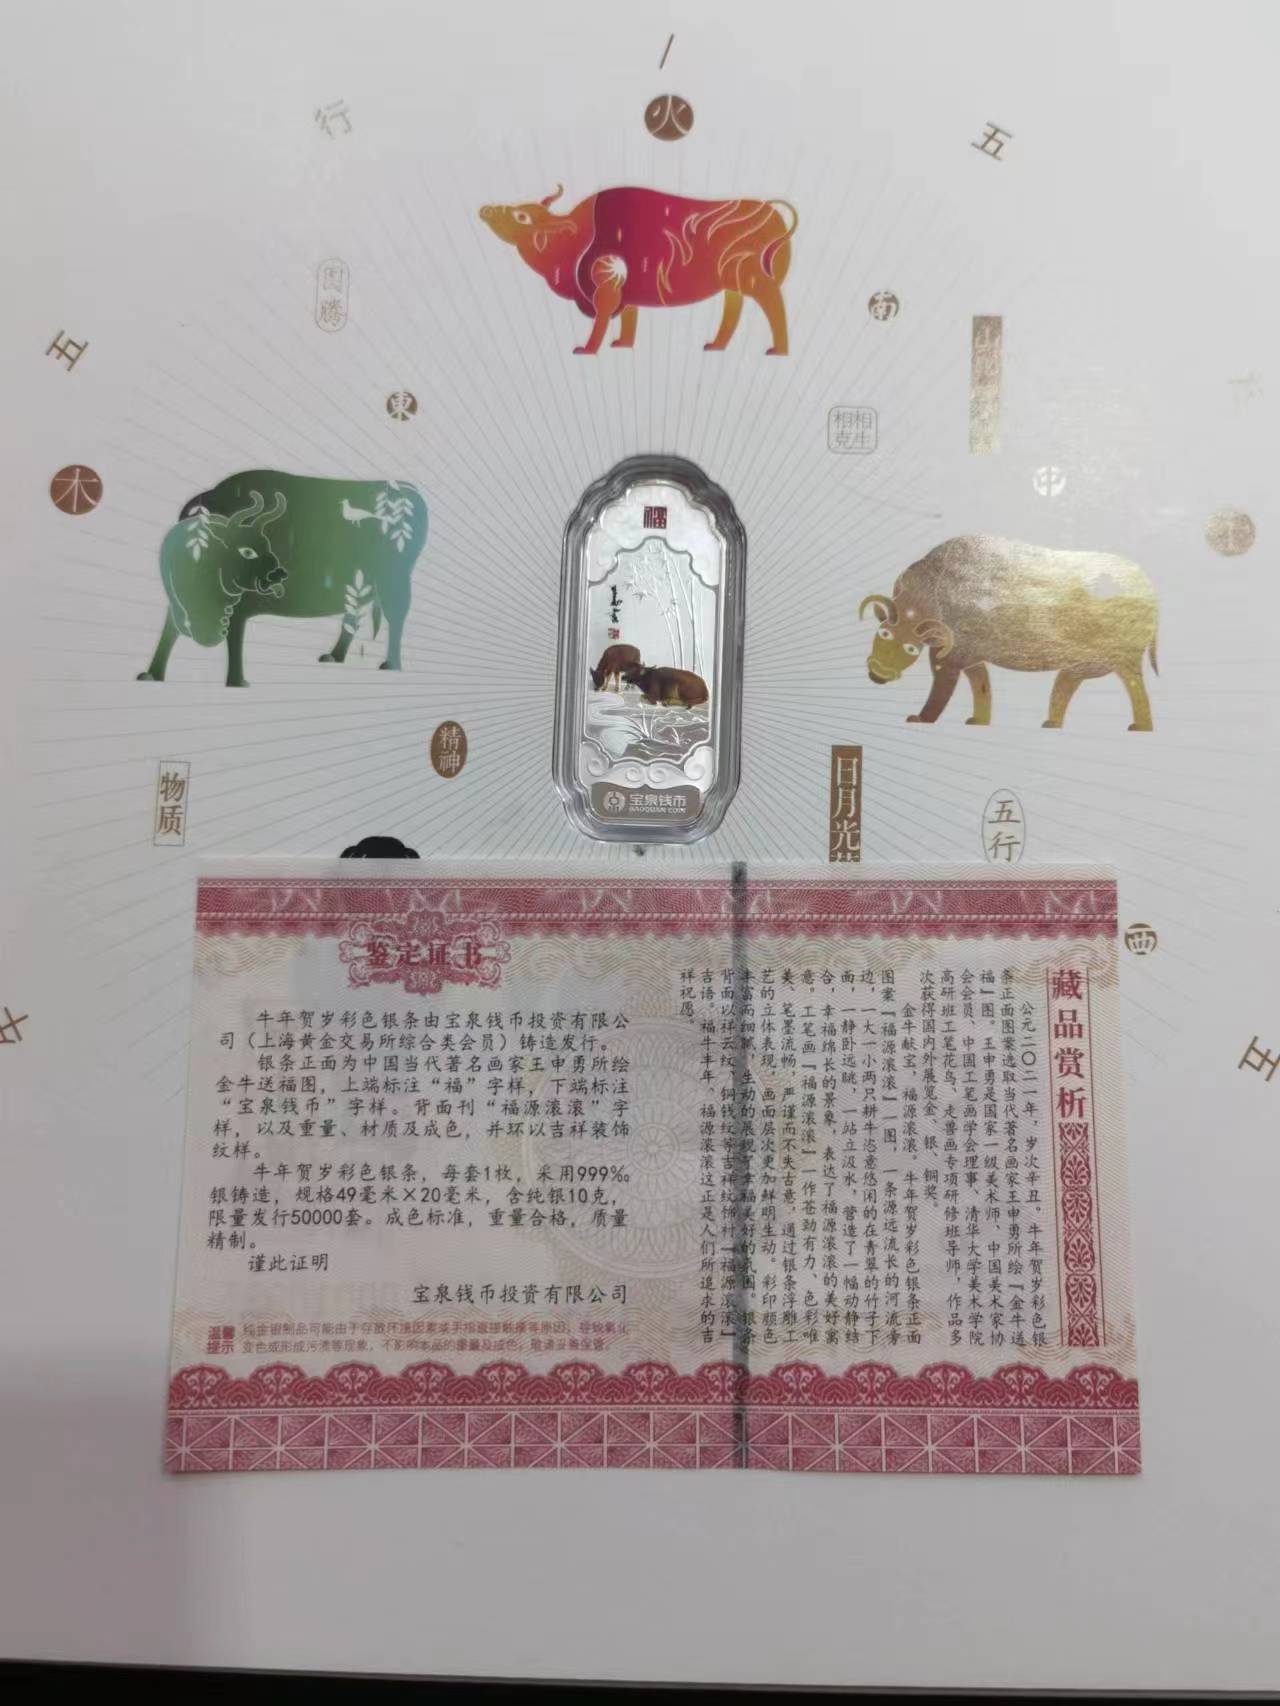 火
行
五
图腾
南
五
東
相生
相克
中
木
福
精神
物质
日月光
五行
宝泉钱币
BAOQUAN COIN
西
五
鉴定证书
牛年贺岁彩色银条由宝泉钱币投资有限公
司（上海黄金交易所综合类会员）铸造发行。
银条正面为中国当代著名画家王申勇所绘
金牛送福图，上端标注“福”字样，下端标注
“宝泉钱币”字样。背面刊“福源滚滚”字
样，以及重量、材质及成色，并环以吉祥装饰
纹样。
牛年贺岁彩色银条，每套1枚，采用999‰
银铸造，规格49毫米×20毫米，含纯银10克，
限量发行50000套。成色标准，重量合格，质量
精制。
谨此证明
宝泉钱币投资有限公司
温馨提示
纯金银制品可能由于存放环境因素或手指直接触摸等原因，导致氧化
变色或形成污渍等现象，不影响本品的重量及成色，敬请妥善保管。
藏品赏析
公元二〇二一年，岁次辛丑。牛年贺岁彩色银
条正面图案选取当代著名画家王申勇所绘『金牛送
福』图。王申勇是国家一级美术师、中国美术家协
会会员、中国工笔画学会理事、清华大学美术学院
高研班工笔花鸟、走兽画专项研修班导师，作品多
次获得国内外展览金、银、铜奖。
金牛献宝，福源滚滚。牛年贺岁彩色银条正面
图案『福源滚滚』一图，一条源远流长的河流旁
边，一大一小两只耕牛恣意悠闲的在青翠的竹子下
面，一静卧远眺，一站立汲水，营造了一幅动静结
合，幸福绵长的景象，表达了福源滚滚的美好寓
意。工笔画『福源滚滚』一作苍劲有力、色彩唯
美、笔墨流畅，严谨而不失古意，通过银条浮雕工
艺的立体表现，画面层次更加鲜明生动。彩印颜色
丰富而细腻，生动的展现了幸福美好的氛围。银条
背面以祥云纹、铜钱纹等吉祥纹饰衬『福源滚滚』
吉语。福牛丰年，福源滚滚这正是人们所追求的吉
祥祝愿。